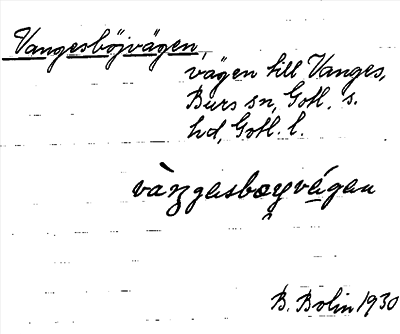 Vangesböjvägen,
vägen till Vanges,
Burs sn, Gotl. s.
hd, Gotl. l.
vàŋgasbɷyvǻgan
B. Bolin 1930